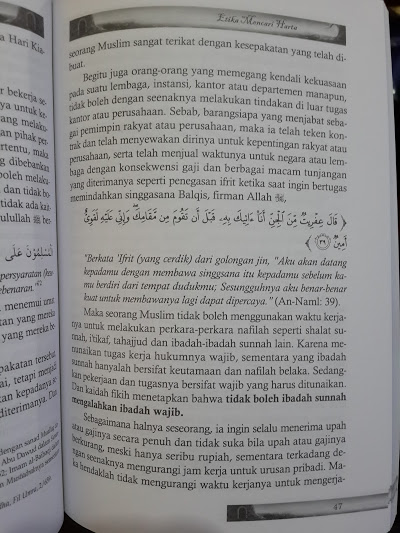 Etika Mencari Harta
seorang Muslim sangat terikat dengan kesepakatan yang telah di-
buat.
Begitu juga orang-orang yang memegang kendali kekuasaan
pada suatu lembaga, instansi, kantor atau departemen manapun,
tidak boleh dengan seenaknya melakukan tindakan di luar tugas
kantor atau perusahaan. Sebab, barangsiapa yang menjabat seba-
gai pemimpin rakyat atau perusahaan, maka ia telah teken kon-
trak dan telah menyewakan dirinya untuk kepentingan rakyat atau
perusahaan, serta telah menjual waktunya untuk negara atau lem-
baga dengan konsekwensi gaji dan berbagai macam tunjangan
yang diterimanya seperti penegasan ifrit ketika saat ingin bertugas
memindahkan singgasana Balqis, firman Allah ﷻ,
﴿ قَالَ عِفْرِيتٌ مِّنَ ٱلْجِنِّ أَنَا۠ ءَاتِيكَ بِهِۦ قَبْلَ أَن تَقُومَ مِن مَّقَامِكَ ۖ وَإِنِّى عَلَيْهِ لَقَوِىٌّ
أَمِينٌ ﴿٣٩﴾ ﴾
"Berkata 'Ifrit (yang cerdik) dari golongan jin, "Aku akan datang
kepadamu dengan membawa singgsana itu kepadamu sebelum ka-
mu berdiri dari tempat dudukmu; Sesungguhnya aku benar-benar
kuat untuk membawanya lagi dapat dipercaya." (An-Naml: 39).
Maka seorang Muslim tidak boleh menggunakan waktu kerja-
nya untuk melakukan perkara-perkara nafilah seperti shalat sun-
nah, itikaf, tahajjud dan ibadah-ibadah sunnah lain. Karena me-
nunaikan tugas kerja hukumnya wajib, sementara yang ibadah
sunnah hanyalah bersifat keutamaan dan nafilah belaka. Sedang-
kan pekerjaan dan tugasnya bersifat wajib yang harus ditunaikan.
Dan kaidah fikih menetapkan bahwa tidak boleh ibadah sunnah
mengalahkan ibadah wajib.
Sebagaimana halnya seseorang, ia ingin selalu menerima upah
atau gajinya secara penuh dan tidak suka bila upah atau gajinya
berkurang, meski hanya seribu rupiah, sementara terkadang de-
ngan seenaknya mengurangi jam kerja untuk urusan pribadi. Ma-
ka hendaklah tidak mengurangi waktu kerjanya untuk mengerja-
47